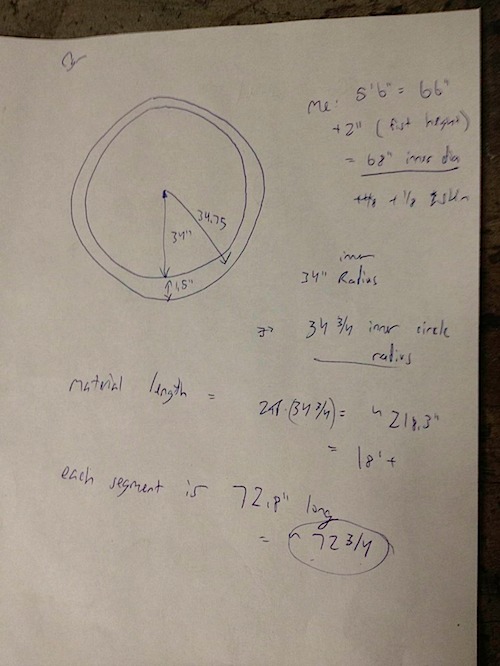 Me: 5'6" = 66"
+2" (fist height)
= 68" inner dia
+ 1/8
34.75
34"
1.5"
inner
34" Radius
=> 34 3/4 inner circle
radius
material length = 2π·(34 3/4) = ~ 218.3"
= 18'+
each segment is 72.8" long
= ~ 72 3/4